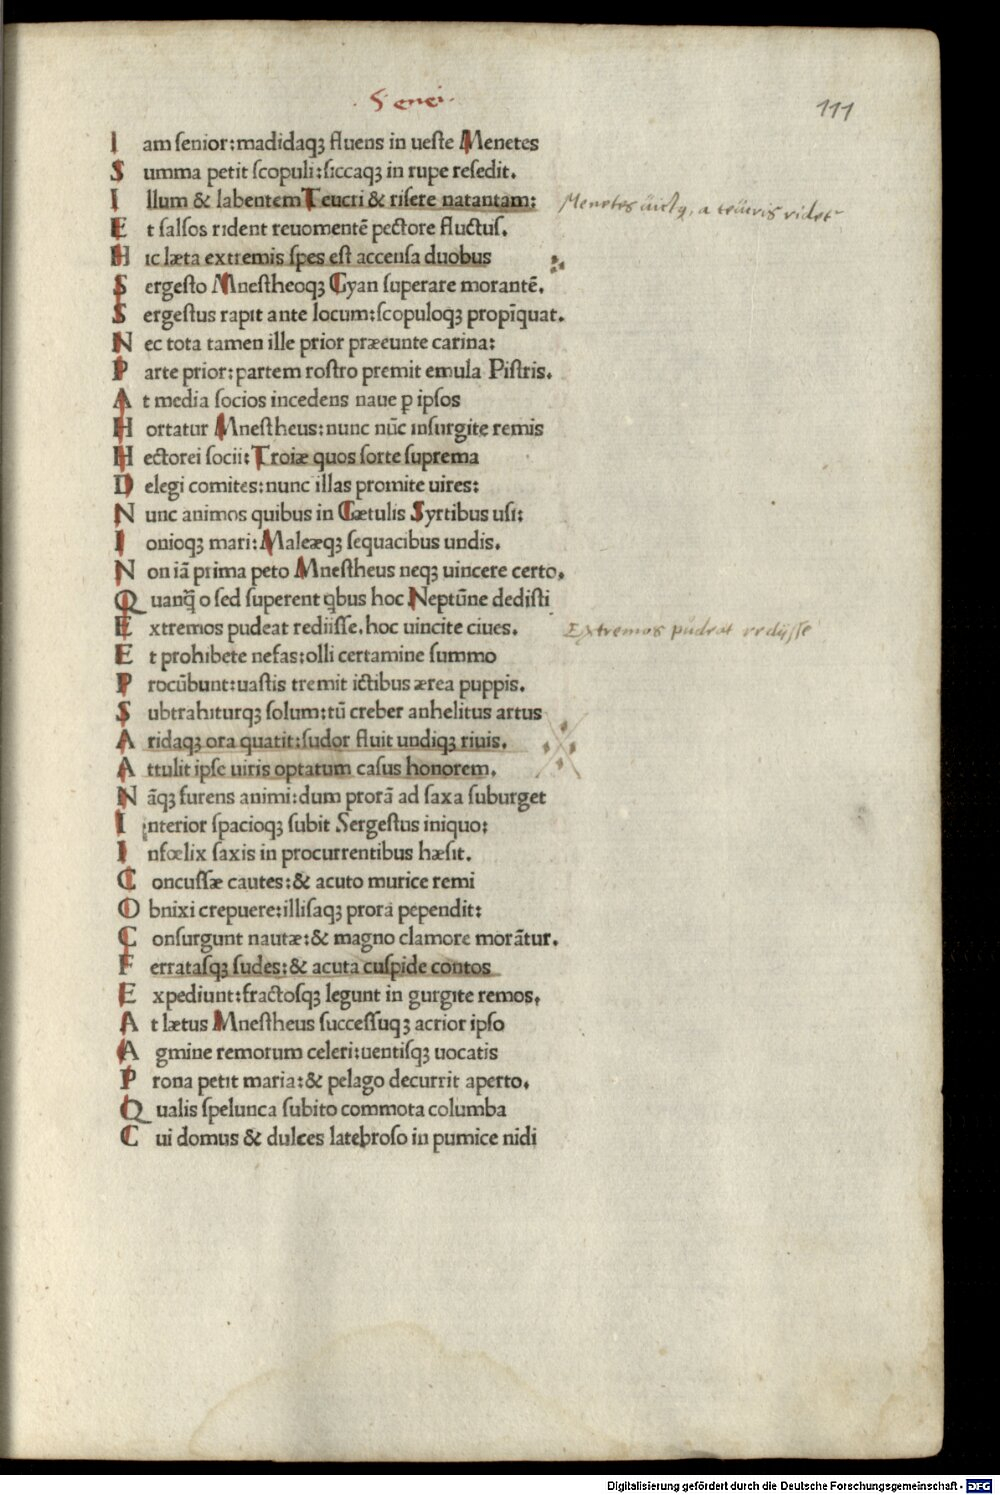 5 enei
111
I am senior: madidaqꝫ fluens in ueste Menetes
S umma petit scopuli: siccaqꝫ in rupe resedit.
I llum & labentem Teucri & risere natantam:
Menetes
E t salsos rident reuomentē pectore fluctus.
H ic læta extremis spes est accensa duobus
S ergesto Mnestheoqꝫ Gyan superare morantē.
S ergestus rapit ante locum: scopuloqꝫ propīquat.
N ec tota tamen ille prior præeunte carina:
P arte prior: partem rostro premit emula Pistris.
A t media socios incedens naue p ipsos
H ortatur Mnestheus: nunc nūc insurgite remis
H ectorei socii: Troiæ quos sorte suprema
D elegi comites: nunc illas promite uires:
N unc animos quibus in Gætulis Syrtibus usi:
I onioqꝫ mari: Maleæqꝫ sequacibus undis.
N on iā prima peto Mnestheus neqꝫ uincere certo.
Q uanq̄ o sed superent qbus hoc Neptūne dedisti
E xtremos pudeat rediisse. hoc uincite ciues.
Extremos pudeat redijsse
E t prohibete nefas: olli certamine summo
P rocūbunt: uastis tremit ictibus ærea puppis.
S ubtrahiturqꝫ solum: tū creber anhelitus artus
A ridaqꝫ ora quatit: sudor fluit undiqꝫ riuis.
A ttulit ipse uiris optatum casus honorem.
N āqꝫ furens animi: dum prorā ad saxa suburget
I nterior spacioqꝫ subit Sergestus iniquo:
I nfœlix saxis in procurrentibus hæsit.
C oncussæ cautes: & acuto murice remi
O bnixi crepuere: illisaqꝫ prora pependit:
C onsurgunt nautæ: & magno clamore morātur.
F erratasqꝫ sudes: & acuta cuspide contos
E xpediunt: fractosqꝫ legunt in gurgite remos.
A t lætus Mnestheus successuqꝫ acrior ipso
A gmine remorum celeri: uentisqꝫ uocatis
P rona petit maria: & pelago decurrit aperto.
Q ualis spelunca subito commota columba
C ui domus & dulces latebroso in pumice nidi
Digitalisierung gefördert durch die Deutsche Forschungsgemeinschaft - DFG